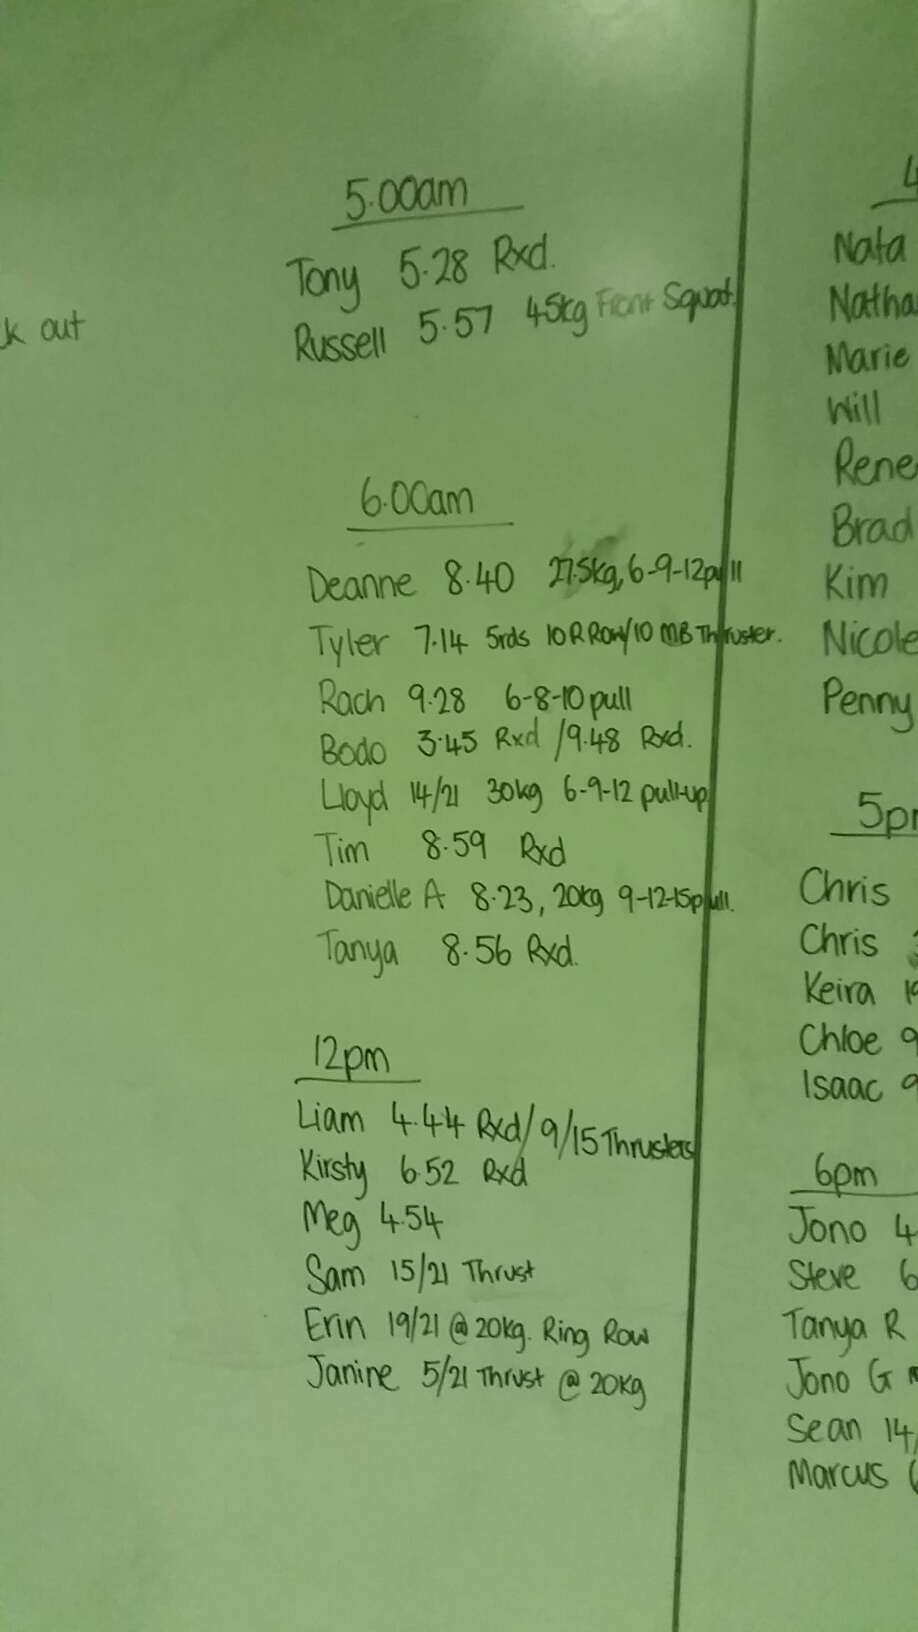 k out
5.00am
Tony 5.28 Rxd.
Russell 5.57 45kg Front Squat.
6.00am
Deanne 8.40 27.5kg, 6-9-12pull
Tyler 7.14 5rds 10 R Row/10 MB Thruster.
Rach 9.28 6-8-10 pull
Bodo 3.45 Rxd /9.48 Rxd.
Lloyd 14/21 30kg 6-9-12 pull-up
Tim 8.59 Rxd
Danielle A 8.23, 20kg 9-12-15pull.
Tanya 8.56 Rxd.
12pm
Liam 4.44 Rxd/ 9/15 Thrusters
Kirsty 6.52 Rxd
Meg 4.54
Sam 15/21 Thrust
Erin 19/21 @ 20kg. Ring Row
Janine 5/21 Thrust @ 20kg
4
Nata
Natha
Marie
Will
Rene
Brad
Kim
Nicole
Penny
5p
Chris
Chris
Keira
Chloe 9
Isaac 9
6pm
Jono 4
Steve 6
Tanya R
Jono G
Sean 14/
Marcus